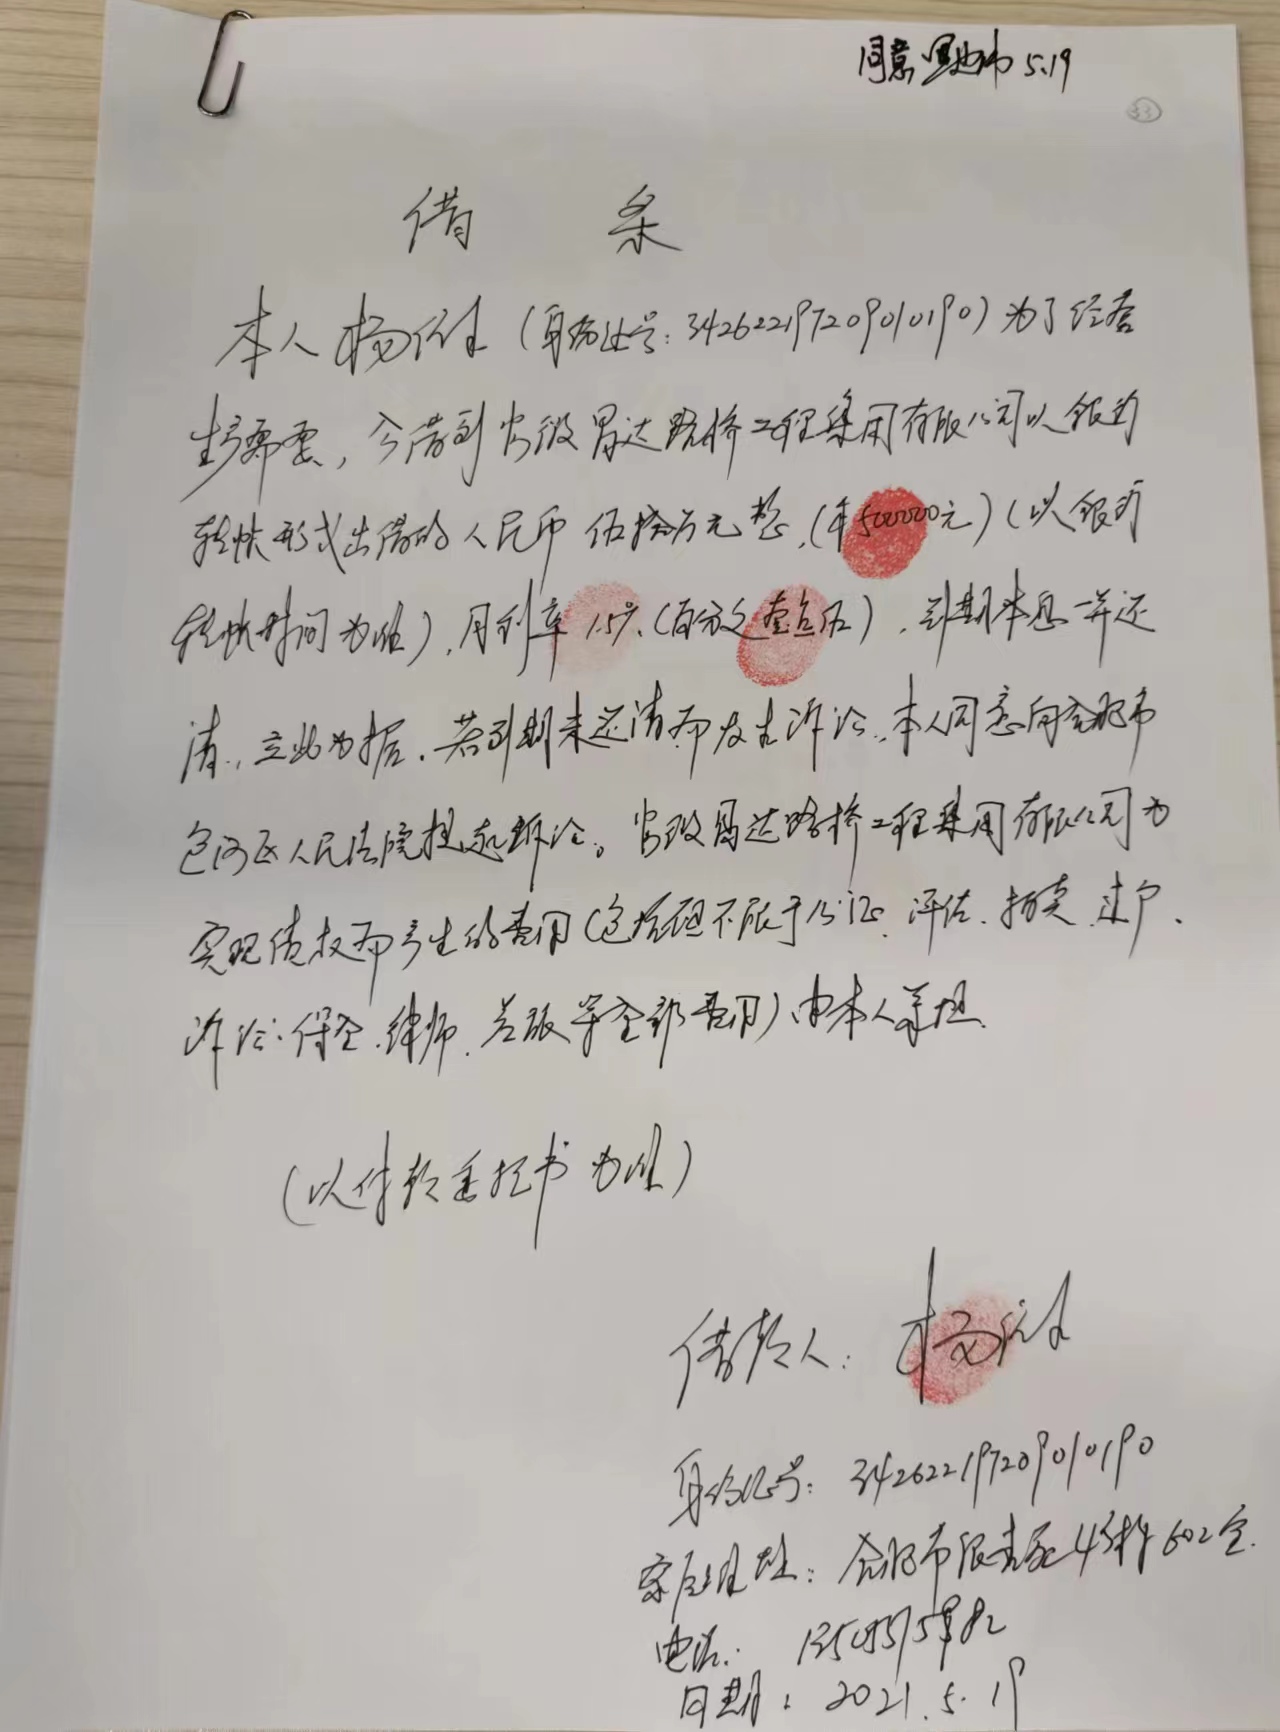 同意 5.19
33
借 条
本人杨 (身份证号:342622197209010190)为了经营
生产需要,今借到安徽昌达路桥工程集团有限公司以银行
转帐形式出借的人民币伍拾万元整,(¥500000元)(以银行
转帐时间为准),月利率1.5%(百分之壹点伍),到期本息一并还
清,立此为据.若到期未还清而发生诉讼,本人同意向合肥市
包河区人民法院提起诉讼。安徽昌达路桥工程集团有限公司为
实现债权而产生的费用(包括但不限于公证、评估、拍卖、过户、
诉讼、保全、律师、差旅等全部费用)由本人承担.
(以付款委托书为准)
借款人:杨
身份证号:342622197209010190
家庭地址:合肥市 602室.
电话:
日期:2021.5.19